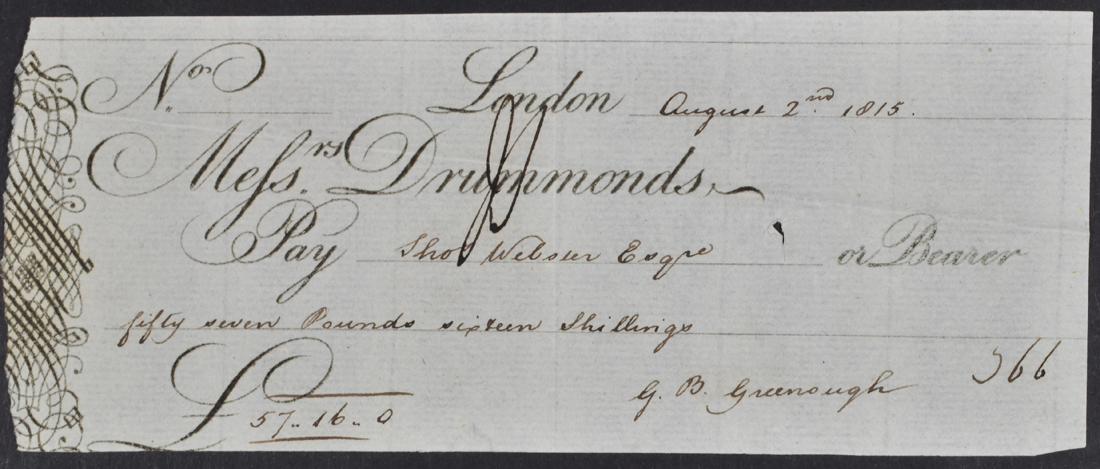 No.
London August 2nd. 1815.
Messrs. Drummonds,
Pay Thos Webster Esqre or Bearer
fifty seven Pounds sixteen Shillings
£ 57.. 16.. 0
G. B. Greenough